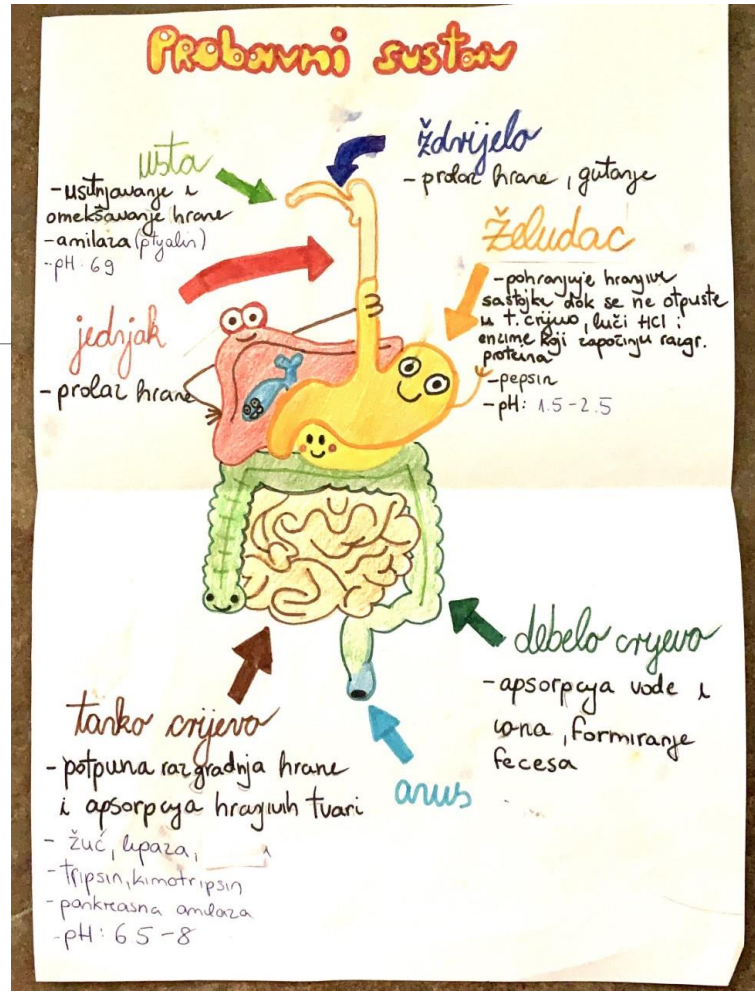 Probavni sustav
usta
-usitnjavanje i
omekšavanje hrane
-amilaza (ptyalin)
-pH: 6.9
ždrijelo
- prolaz hrane, gutanje
želudac
-pohranjuje hranjive
sastojke dok se ne otpuste
u t. crijevo, luči HCl i
enzime koji započinju razgr.
proteina
-pepsin
-pH: 1.5-2.5
jednjak
- prolaz hrane
debelo crijevo
-apsorpcija vode i
iona, formiranje
fecesa
tanko crijevo
- potpuna razgradnja hrane
i apsorpcija hranjivih tvari
- žuć, lipaza,
-tripsin, kimotripsin
-pankreasna amilaza
-pH: 6.5-8
anus